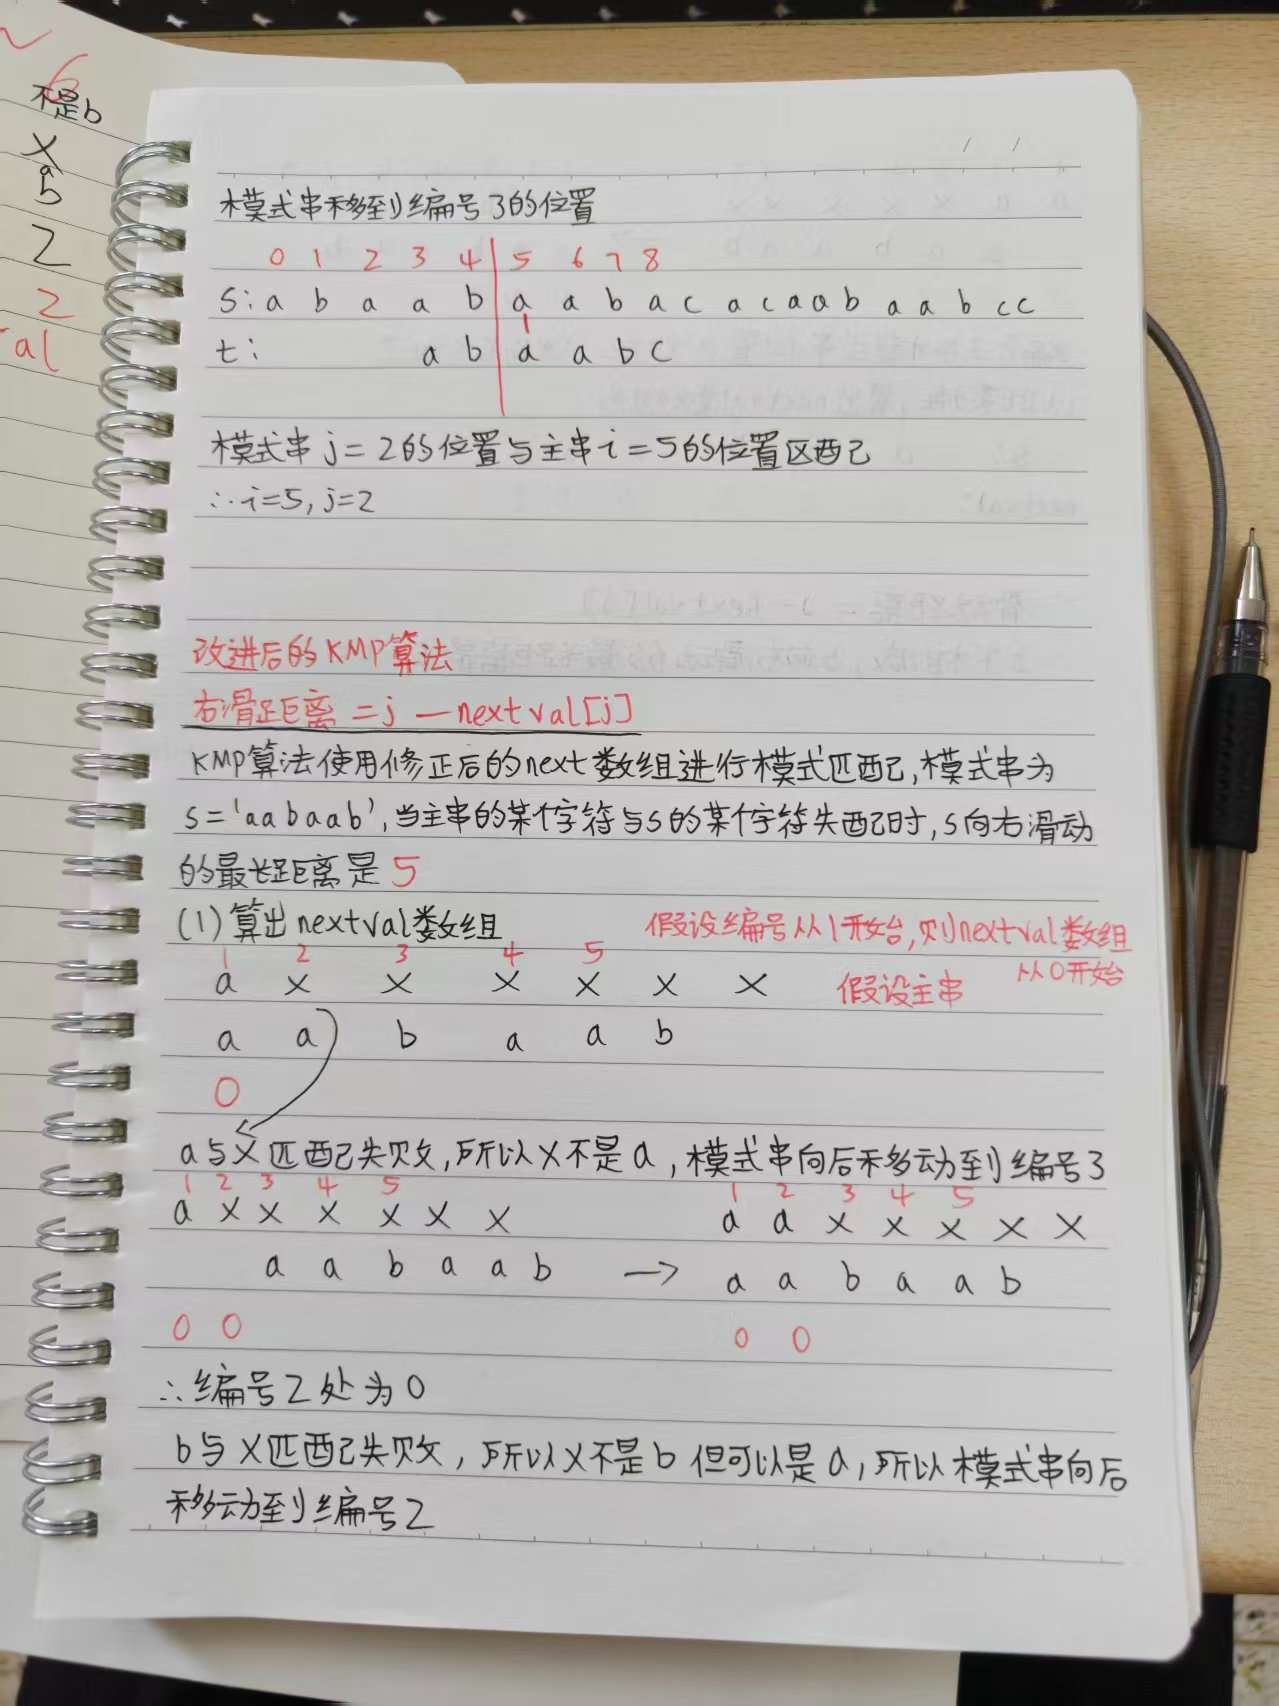 不是b
x
a
b
2
2
al
模式串移到编号3的位置
0 1 2 3 4 5 6 7 8
s: a b a a b a a b a c a c a a b a a b c c
t: a b a a b c
模式串j=2的位置与主串i=5的位置匹配
∴i=5, j=2
改进后的KMP算法
右滑距离=j—nextval[j]
KMP算法使用修正后的next数组进行模式匹配,模式串为
s='aabaab',当主串的某个字符与s的某个字符失配时,s向右滑动
的最长距离是5
(1)算出nextval数组 假设编号从1开始,则nextval数组
从0开始
1 2 3 4 5
a x x x x x x 假设主串
a a b a a b
0
a与x匹配失败,所以x不是a,模式串向后移动到编号3
1 2 3 4 5 1 2 3 4 5
a x x x x x x a a x x x x x
a a b a a b → a a b a a b
0 0 0 0
∴编号2处为0
b与x匹配失败,所以x不是b但可以是a,所以模式串向后
移动到编号2